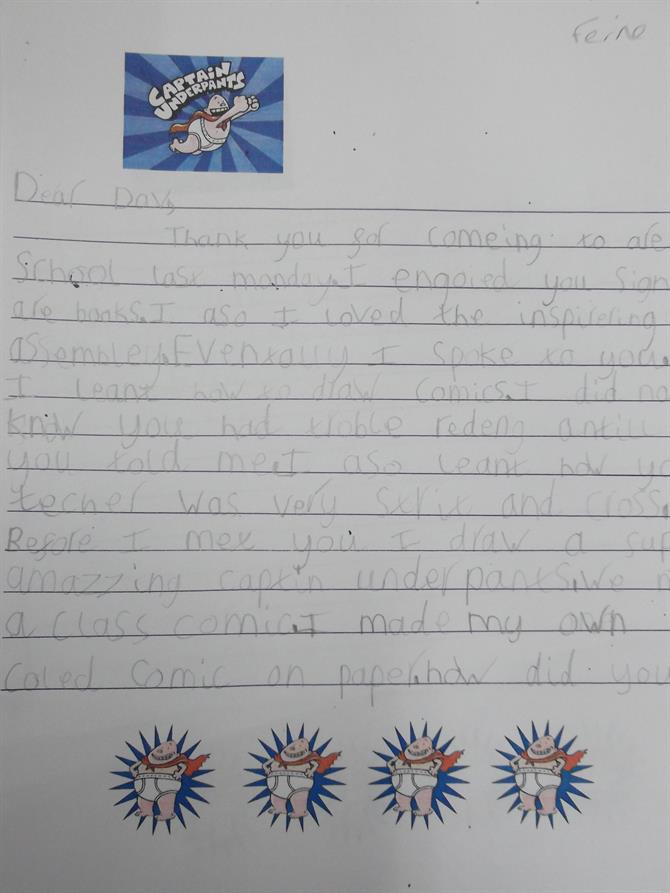 Feino
CAPTAIN
UNDERPANTS
Dear Dav,
Thank you for comeing to are
School last monday. I engoied you sign
are books. I aso I loved the inspirering
assembley. Eventually I spoke to you.
I leant how to draw comics. I did no
know you had troble redeng antill
you told me. I aso leant how yo
techer was very strix and cross.
Before I met you I draw a sup
amazzing captin underpants. We
a class comic. I made my own
caled Comic on paper. how did you